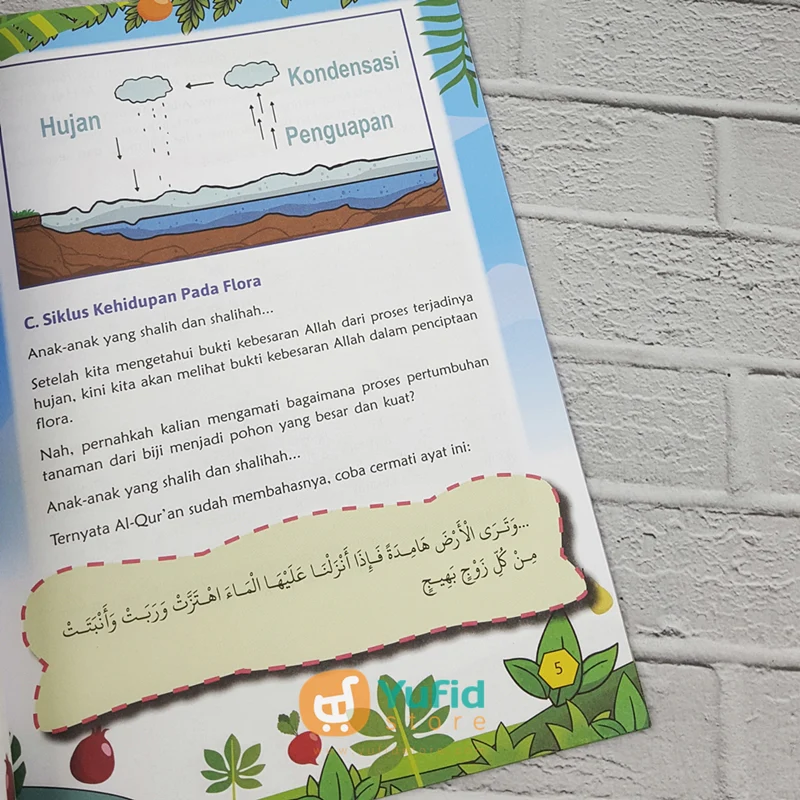 Kondensasi
Hujan
Penguapan
C. Siklus Kehidupan Pada Flora
Anak-anak yang shalih dan shalihah...
Setelah kita mengetahui bukti kebesaran Allah dari proses terjadinya
hujan, kini kita akan melihat bukti kebesaran Allah dalam penciptaan
flora.
Nah, pernahkah kalian mengamati bagaimana proses pertumbuhan
tanaman dari biji menjadi pohon yang besar dan kuat?
Anak-anak yang shalih dan shalihah...
Ternyata Al-Qur'an sudah membahasnya, coba cermati ayat ini:
...وَتَرَى الْأَرْضَ هَامِدَةً فَإِذَا أَنْزَلْنَا عَلَيْهَا الْمَاءَ اهْتَزَّتْ وَرَبَتْ وَأَنْبَتَتْ
مِنْ كُلِّ زَوْجٍ بَهِيجٍ
5
Yufid
store